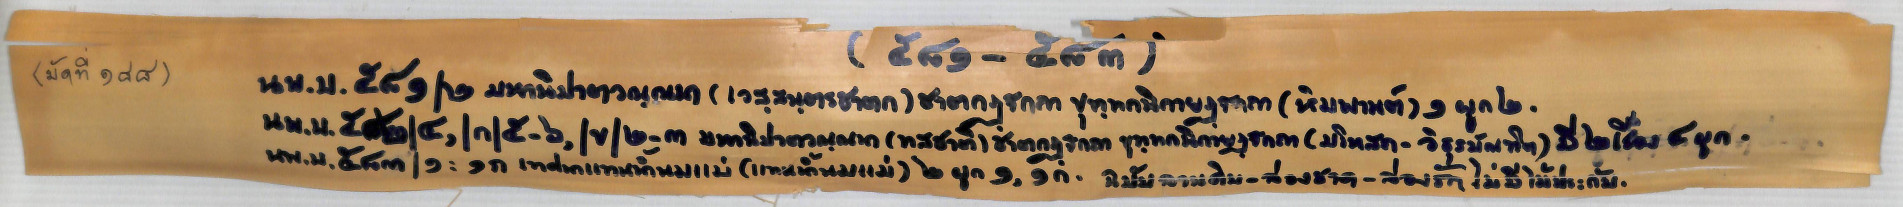 ( ๕๘๑ - ๕๘๓ )
(มัดที่ ๑๘๘)
นพ.บ. ๕๘๑/๒ มหานิปาตวณฺณนา (เวสฺสนฺตรชาตก) ชาตกฏฺฐกถา ขุทฺทกนิกายฏฺฐกถา (หิมพานต์) ๑ ผูก ๒.
นพ.บ. ๕๘๒/๔, /ก/๕-๖, /ข/๒-๓ มหานิปาตวณฺณนา (ทสชาติ) ชาตกฏฺฐกถา ขุทฺทกนิกายฏฺฐกถา (มโหสถ - วิธุรบัณฑิต) มี ๒ เรื่อง ๕ ผูก.
นพ.บ. ๕๘๓/๑ : ๑ก เทศนาแทนน้ำนมแม่ (แทนน้ำนมแม่) ๒ ผูก ๑, ๑ก. ฉบับลานดิบ - ล่องชาด - ล่องรัก ไม่มีไม้ประกับ.